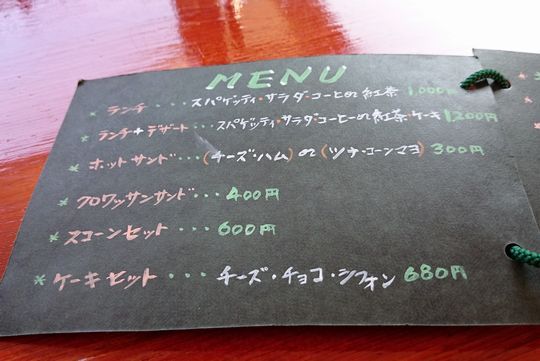 MENU
* ランチ・・・スパゲッティ・サラダ・コーヒーor紅茶 1,000円
* ランチ+デザート・・・スパゲッティ・サラダ・コーヒーor紅茶・ケーキ 1200円
* ホットサンド・・・(チーズ・ハム) or (ツナ・コーンマヨ) 300円
* クロワッサンサンド・・・400円
* スコーンセット・・・600円
* ケーキセット・・・チーズ・チョコ・シフォン 680円